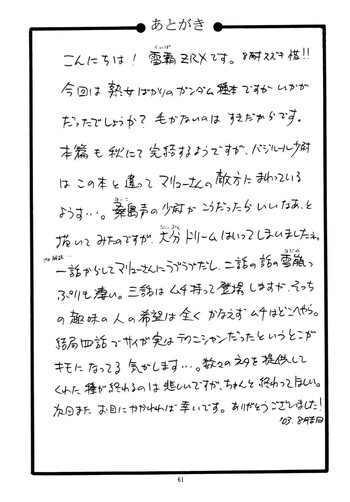 あとがき
こんにちは！雪霸ZRXです。8耐スズキ惜!!
今回は熟女ばかりのガンダム種本ですがいかが
だったでしょうか？毛がないのはすきだからです。
本篇も秋にて完結するようですが、バジルール少尉
はこの本と違ってマリューさんの敵方にまわっている
ようす…。桑島声の少尉がこうだったらいいなあ、と
描いてみたのですが、大分ドリームはいってしまいましたネ。
一話からしてマリューさんにラブラブだし、二話の話の
ぷりも凄い。三話はムチ持って登場しますが、そっち
の趣味の人の希望は全くかなえずムチはどこへやら。
結局四話でサイが実はテクニシャンだったというとこが
キモになってる気がします…。数々のネタを提供して
くれた種が終わるのは悲しいですが、ちゃんと終わってほしい。
次回またお目にかかれれば幸いです。ありがとうございました！
'03.8月吉日
61